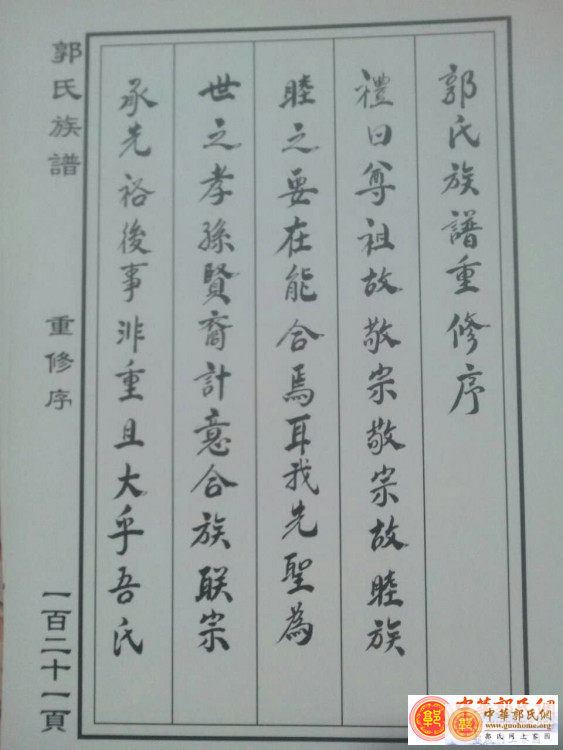 郭氏族譜重修序
禮曰尊祖故敬宗敬宗故睦族
睦之要在能合焉耳我先聖為
世之孝孫賢裔計意合族联宗
承先裕後事非重且大乎吾氏
郭氏族譜
重修序
一百二十一頁
中華郭氏網
www.guohome.org
郭氏网上家园